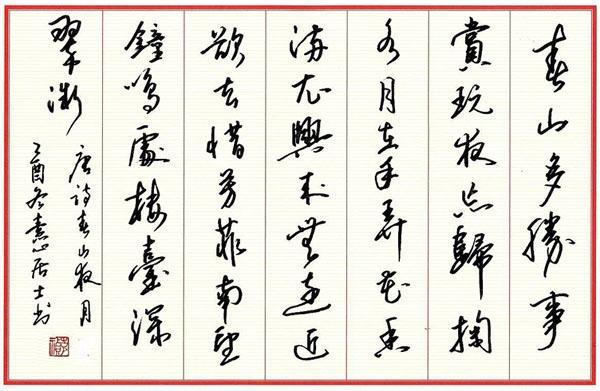 春山多勝事
賞玩夜忘歸掬
水月在手弄花香
滿衣興来無遠近
欲去惜芳菲南望
鐘鳴處楼臺深
翠微
唐诗春山夜月
乙酉冬居士书